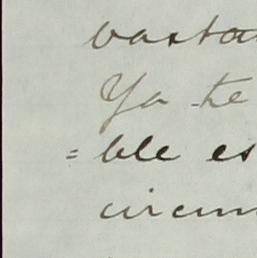 basta
Ya te
= ble es
circun